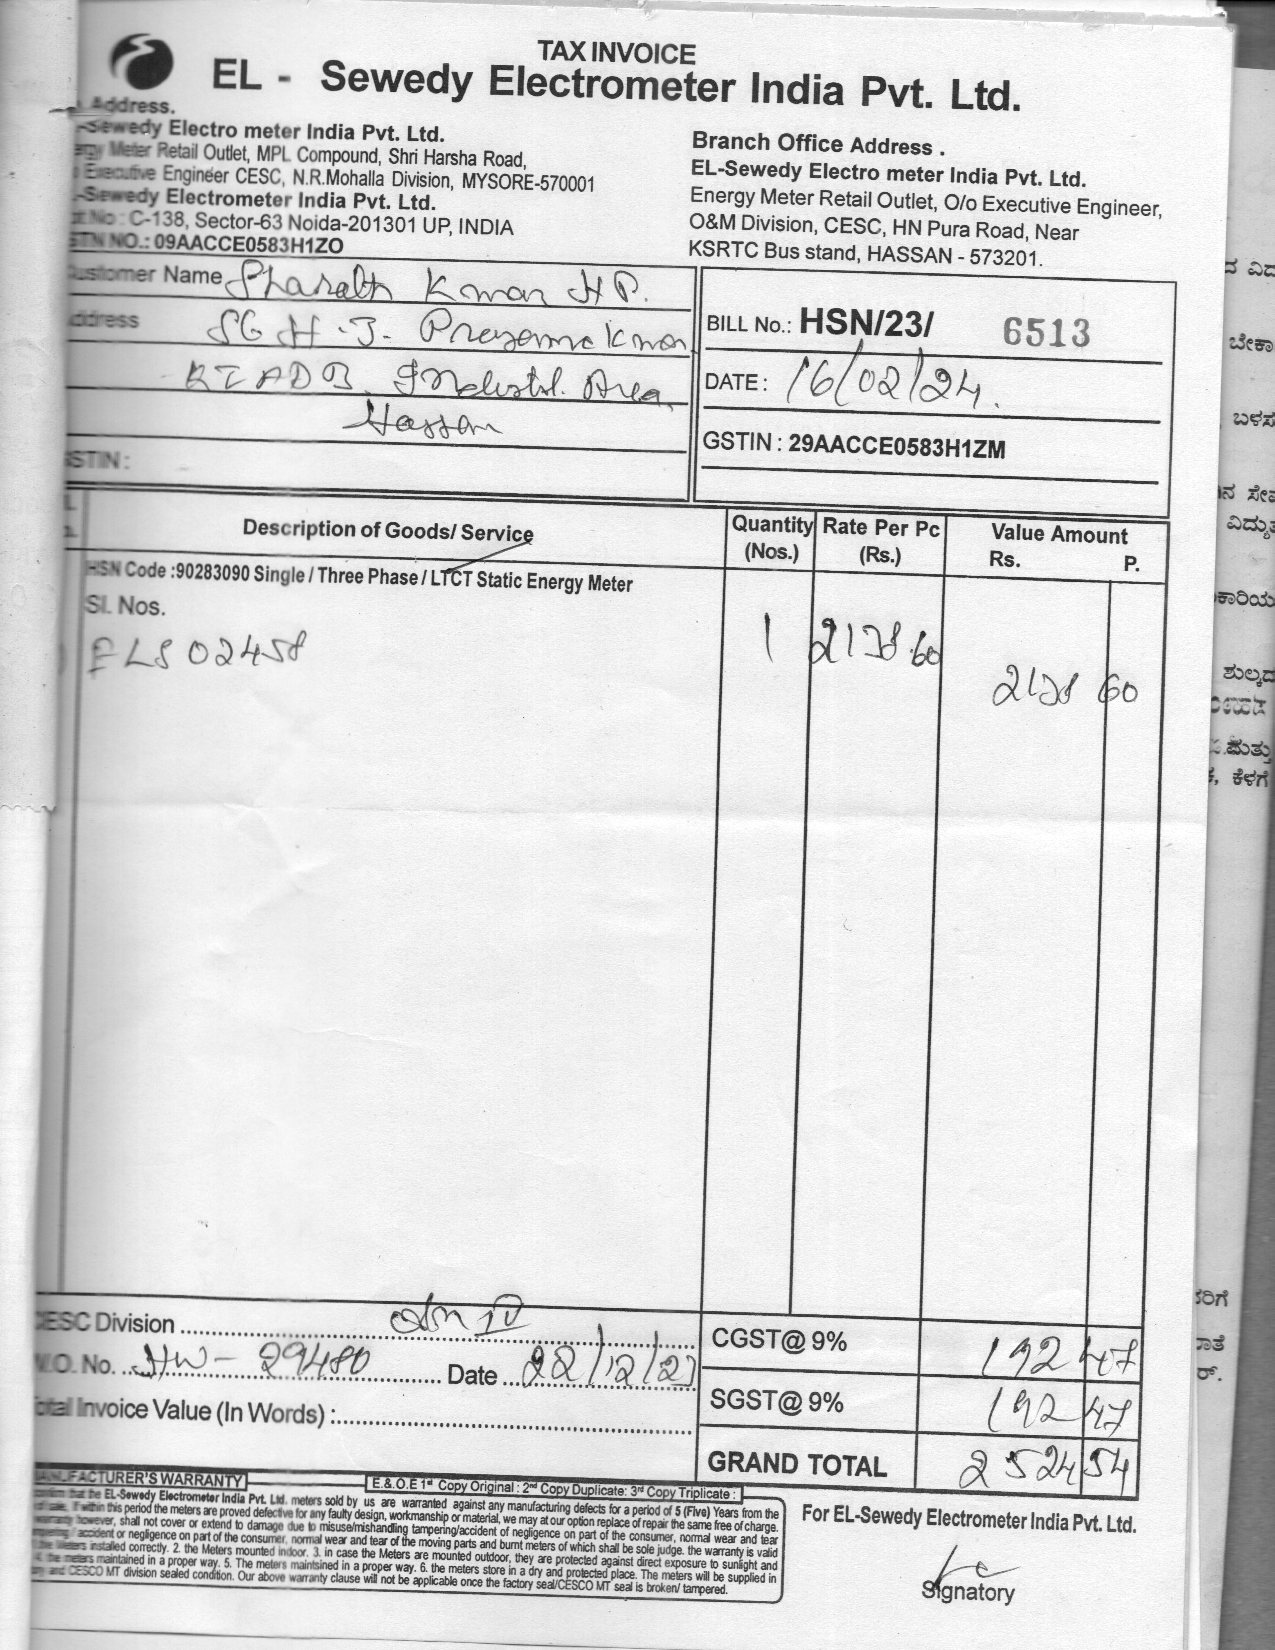 TAX INVOICE
EL - Sewedy Electrometer India Pvt. Ltd.
Address.
-Sewedy Electro meter India Pvt. Ltd.
Meter Retail Outlet, MPL Compound, Shri Harsha Road,
Executive Engineer CESC, N.R.Mohalla Division, MYSORE-570001
-Sewedy Electrometer India Pvt. Ltd.
No : C-138, Sector-63 Noida-201301 UP, INDIA
STN NO.: 09AACCE0583H1ZO
Branch Office Address .
EL-Sewedy Electro meter India Pvt. Ltd.
Energy Meter Retail Outlet, O/o Executive Engineer,
O&M Division, CESC, HN Pura Road, Near
KSRTC Bus stand, HASSAN - 573201.
ustomer Name Bharath Kumar H P.
ddress
KIADB Industrl. Area,
Hassan
STIN :
BILL No.: HSN/23/ 6513
DATE : 16/02/24.
GSTIN : 29AACCE0583H1ZM
Description of Goods/ Service
Quantity (Nos.)
Rate Per Pc (Rs.)
Value Amount
Rs. P.
HSN Code :90283090 Single / Three Phase / LTCT Static Energy Meter
Sl. Nos.
ELS 02458 1 2138.60 2138 60
CESC Division
W.O. No. HW - 29480 Date 22/12/23
otal Invoice Value (In Words) :
CGST@ 9% 192 47
SGST@ 9% 192 47
GRAND TOTAL 2524 54
MANUFACTURER'S WARRANTY
E.& O.E 1st Copy Original : 2nd Copy Duplicate: 3rd Copy Triplicate :
confirm that the EL-Sewedy Electrometer India Pvt. Ltd. meters sold by us are warranted against any manufacturing defects for a period of 5 (Five) Years from the
of sale. If within this period the meters are proved defective for any faulty design, workmanship or material, we may at our option replace of repair the same free of charge.
warranty however, shall not cover or extend to damage due to misuse/mishandling tampering/accident of negligence on part of the consumer, normal wear and tear
accident or negligence on part of the consumer, normal wear and tear of the moving parts and burnt meters of which shall be sole judge. the warranty is valid
the Meters installed correctly. 2. the Meters mounted indoor. 3. in case the Meters are mounted outdoor, they are protected against direct exposure to sunlight and
4. the meters maintained in a proper way. 5. The meters maintsined in a proper way. 6. the meters store in a dry and protected place. The meters will be supplied in
and CESCO MT division sealed condition. Our above warranty clause will not be applicable once the factory seal/CESCO MT seal is broken/ tampered.
For EL-Sewedy Electrometer India Pvt. Ltd.
Signatory